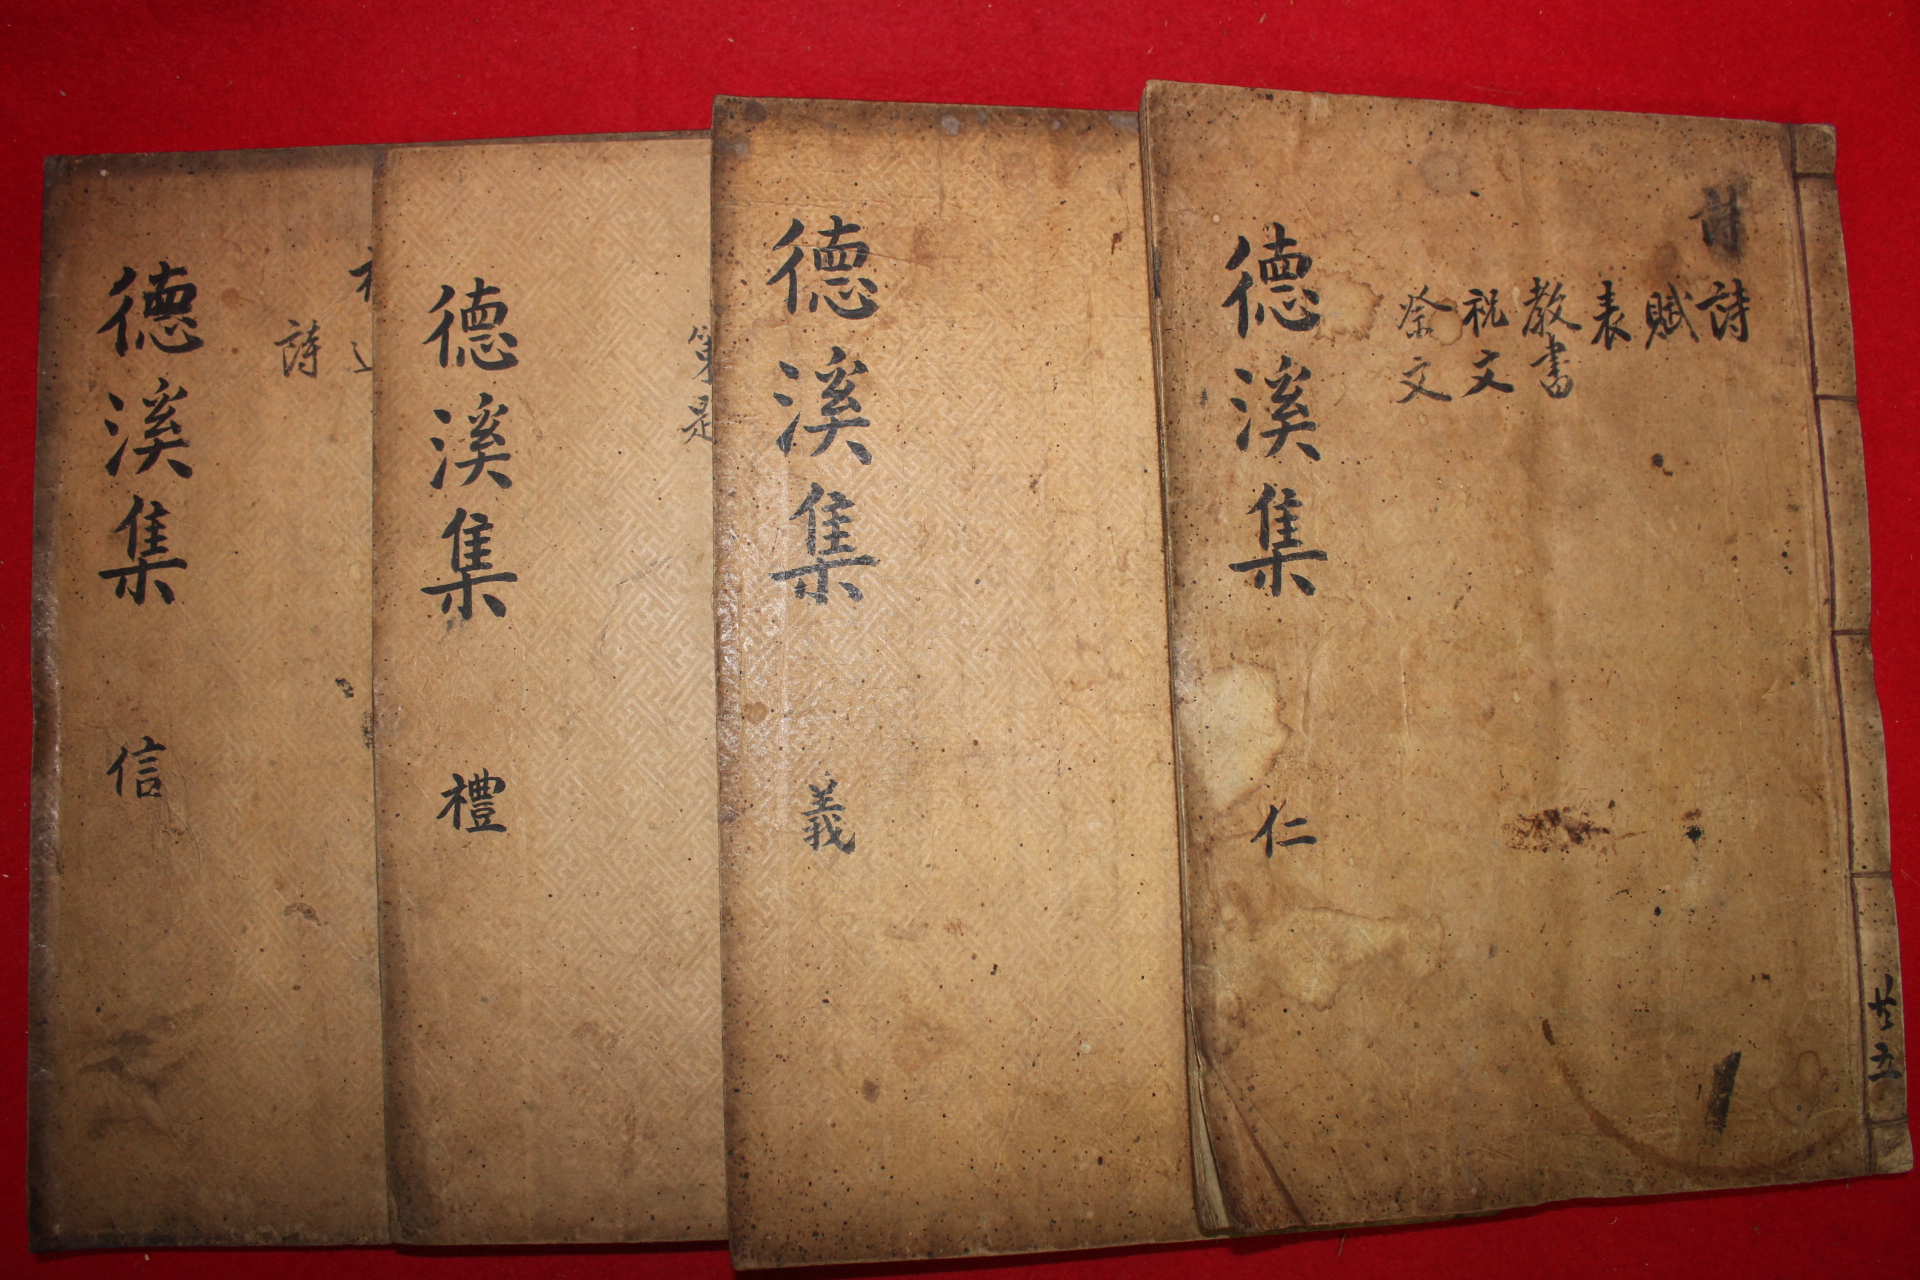 詩
詩
賦
表
教書
祝文
祭文
德溪集 仁
廿五
德溪集 義
德溪集 禮
德溪集 信
詩